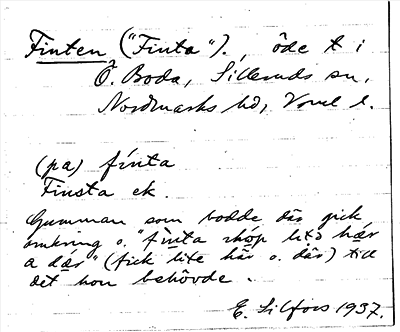 Finten ("Finta")., öde t i
Ö. Boda, Silleruds sn,
Nordmarks hd, Vrml l.
(pa) finta
Finsta ek.
Gumman som bodde där gick
omkring o. "finta shöp litə hær
a dær" (fick lite här o. där) till
det hon behövde.
E. Lilfors 1937.